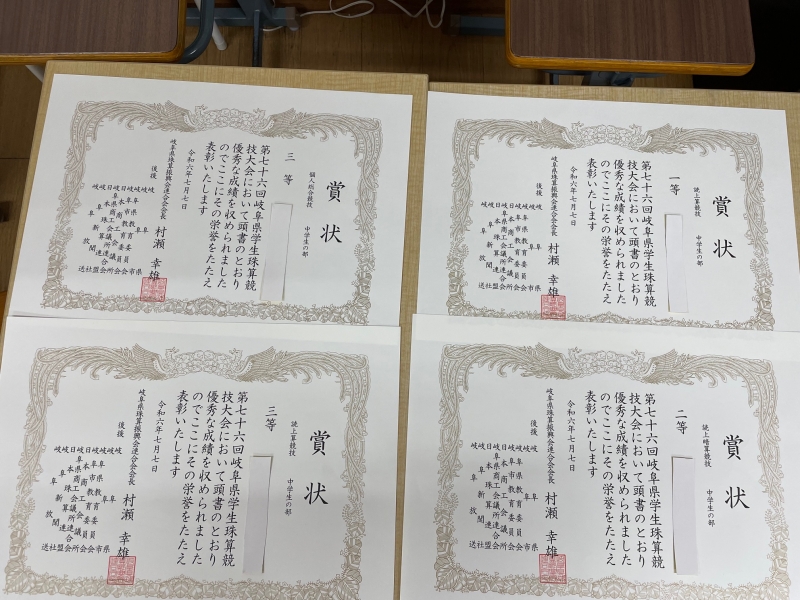 賞状
個人総合競技 中学生の部
三等
第七十六回岐阜県学生珠算競
技大会において頭書のとおり
優秀な成績を収められました
のでここにその栄誉をたたえ
表彰いたします
令和六年七月七日
岐阜県珠算振興会連合会会長 村瀬幸雄
後援
岐阜県
岐阜市
岐阜県教育委員会
岐阜市教育委員会
日本商工会議所
岐阜新聞社
岐阜放送
賞状
読上算競技 中学生の部
一等
第七十六回岐阜県学生珠算競
技大会において頭書のとおり
優秀な成績を収められました
のでここにその栄誉をたたえ
表彰いたします
令和六年七月七日
岐阜県珠算振興会連合会会長 村瀬幸雄
後援
岐阜県
岐阜市
岐阜県教育委員会
岐阜市教育委員会
日本商工会議所
岐阜新聞社
岐阜放送
賞状
読上算競技 中学生の部
三等
第七十六回岐阜県学生珠算競
技大会において頭書のとおり
優秀な成績を収められました
のでここにその栄誉をたたえ
表彰いたします
令和六年七月七日
岐阜県珠算振興会連合会会長 村瀬幸雄
後援
岐阜県
岐阜市
岐阜県教育委員会
岐阜市教育委員会
日本商工会議所
岐阜新聞社
岐阜放送
賞状
読上暗算競技 中学生の部
二等
第七十六回岐阜県学生珠算競
技大会において頭書のとおり
優秀な成績を収められました
のでここにその栄誉をたたえ
表彰いたします
令和六年七月七日
岐阜県珠算振興会連合会会長 村瀬幸雄
後援
岐阜県
岐阜市
岐阜県教育委員会
岐阜市教育委員会
日本商工会議所
岐阜新聞社
岐阜放送